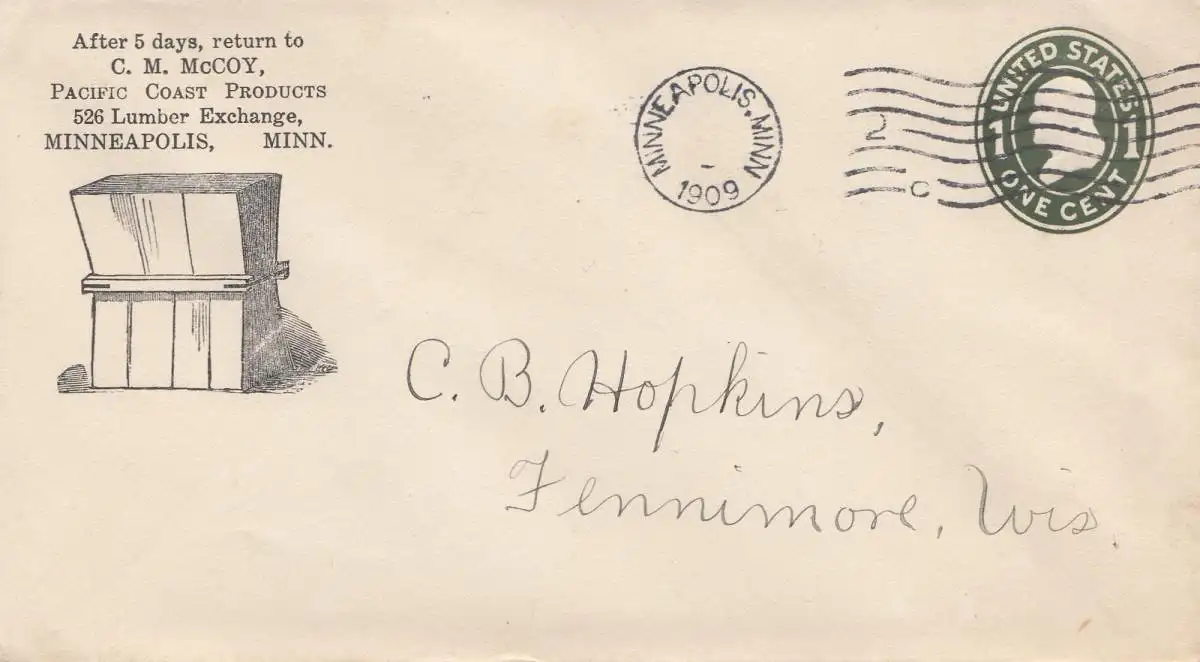 After 5 days, return to
C. M. McCOY,
PACIFIC COAST PRODUCTS
526 Lumber Exchange,
MINNEAPOLIS, MINN.
MINNEAPOLIS, MINN
1909
2
C
UNITED STATES
1 1
ONE CENT
C. B. Hopkins,
Fennimore, Wis.